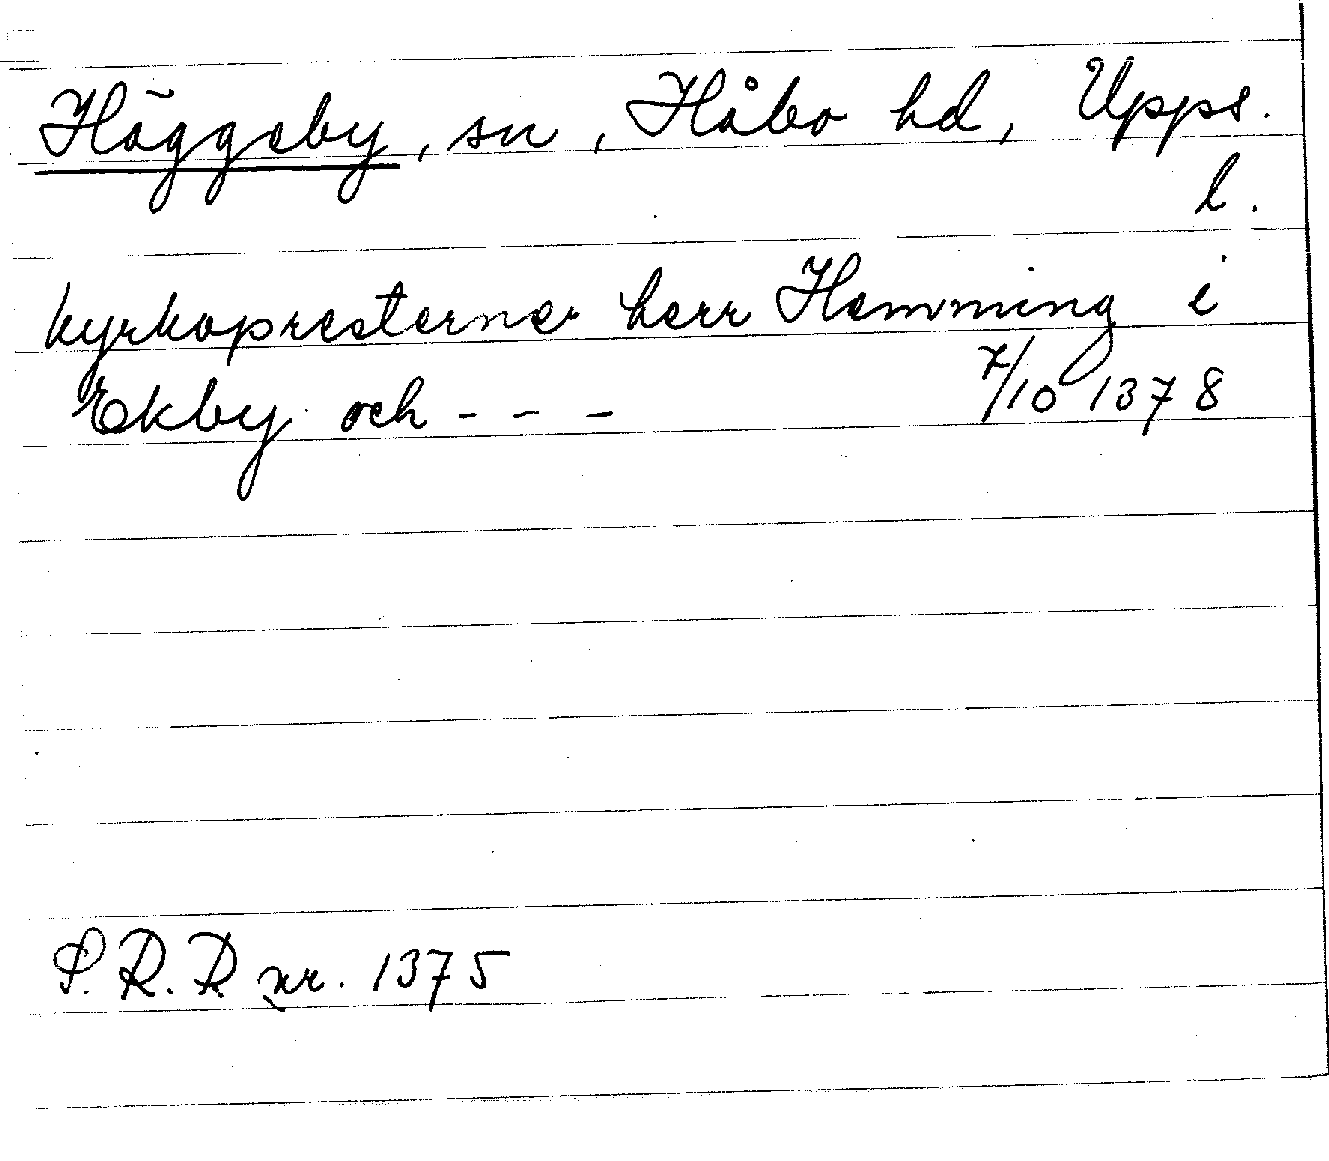 Häggeby, sn, Håbo hd, Upps.
l.
kyrkopresterne herr Hemming i
Ekby och - - - 7/10 1378
S.R.P nr. 1375